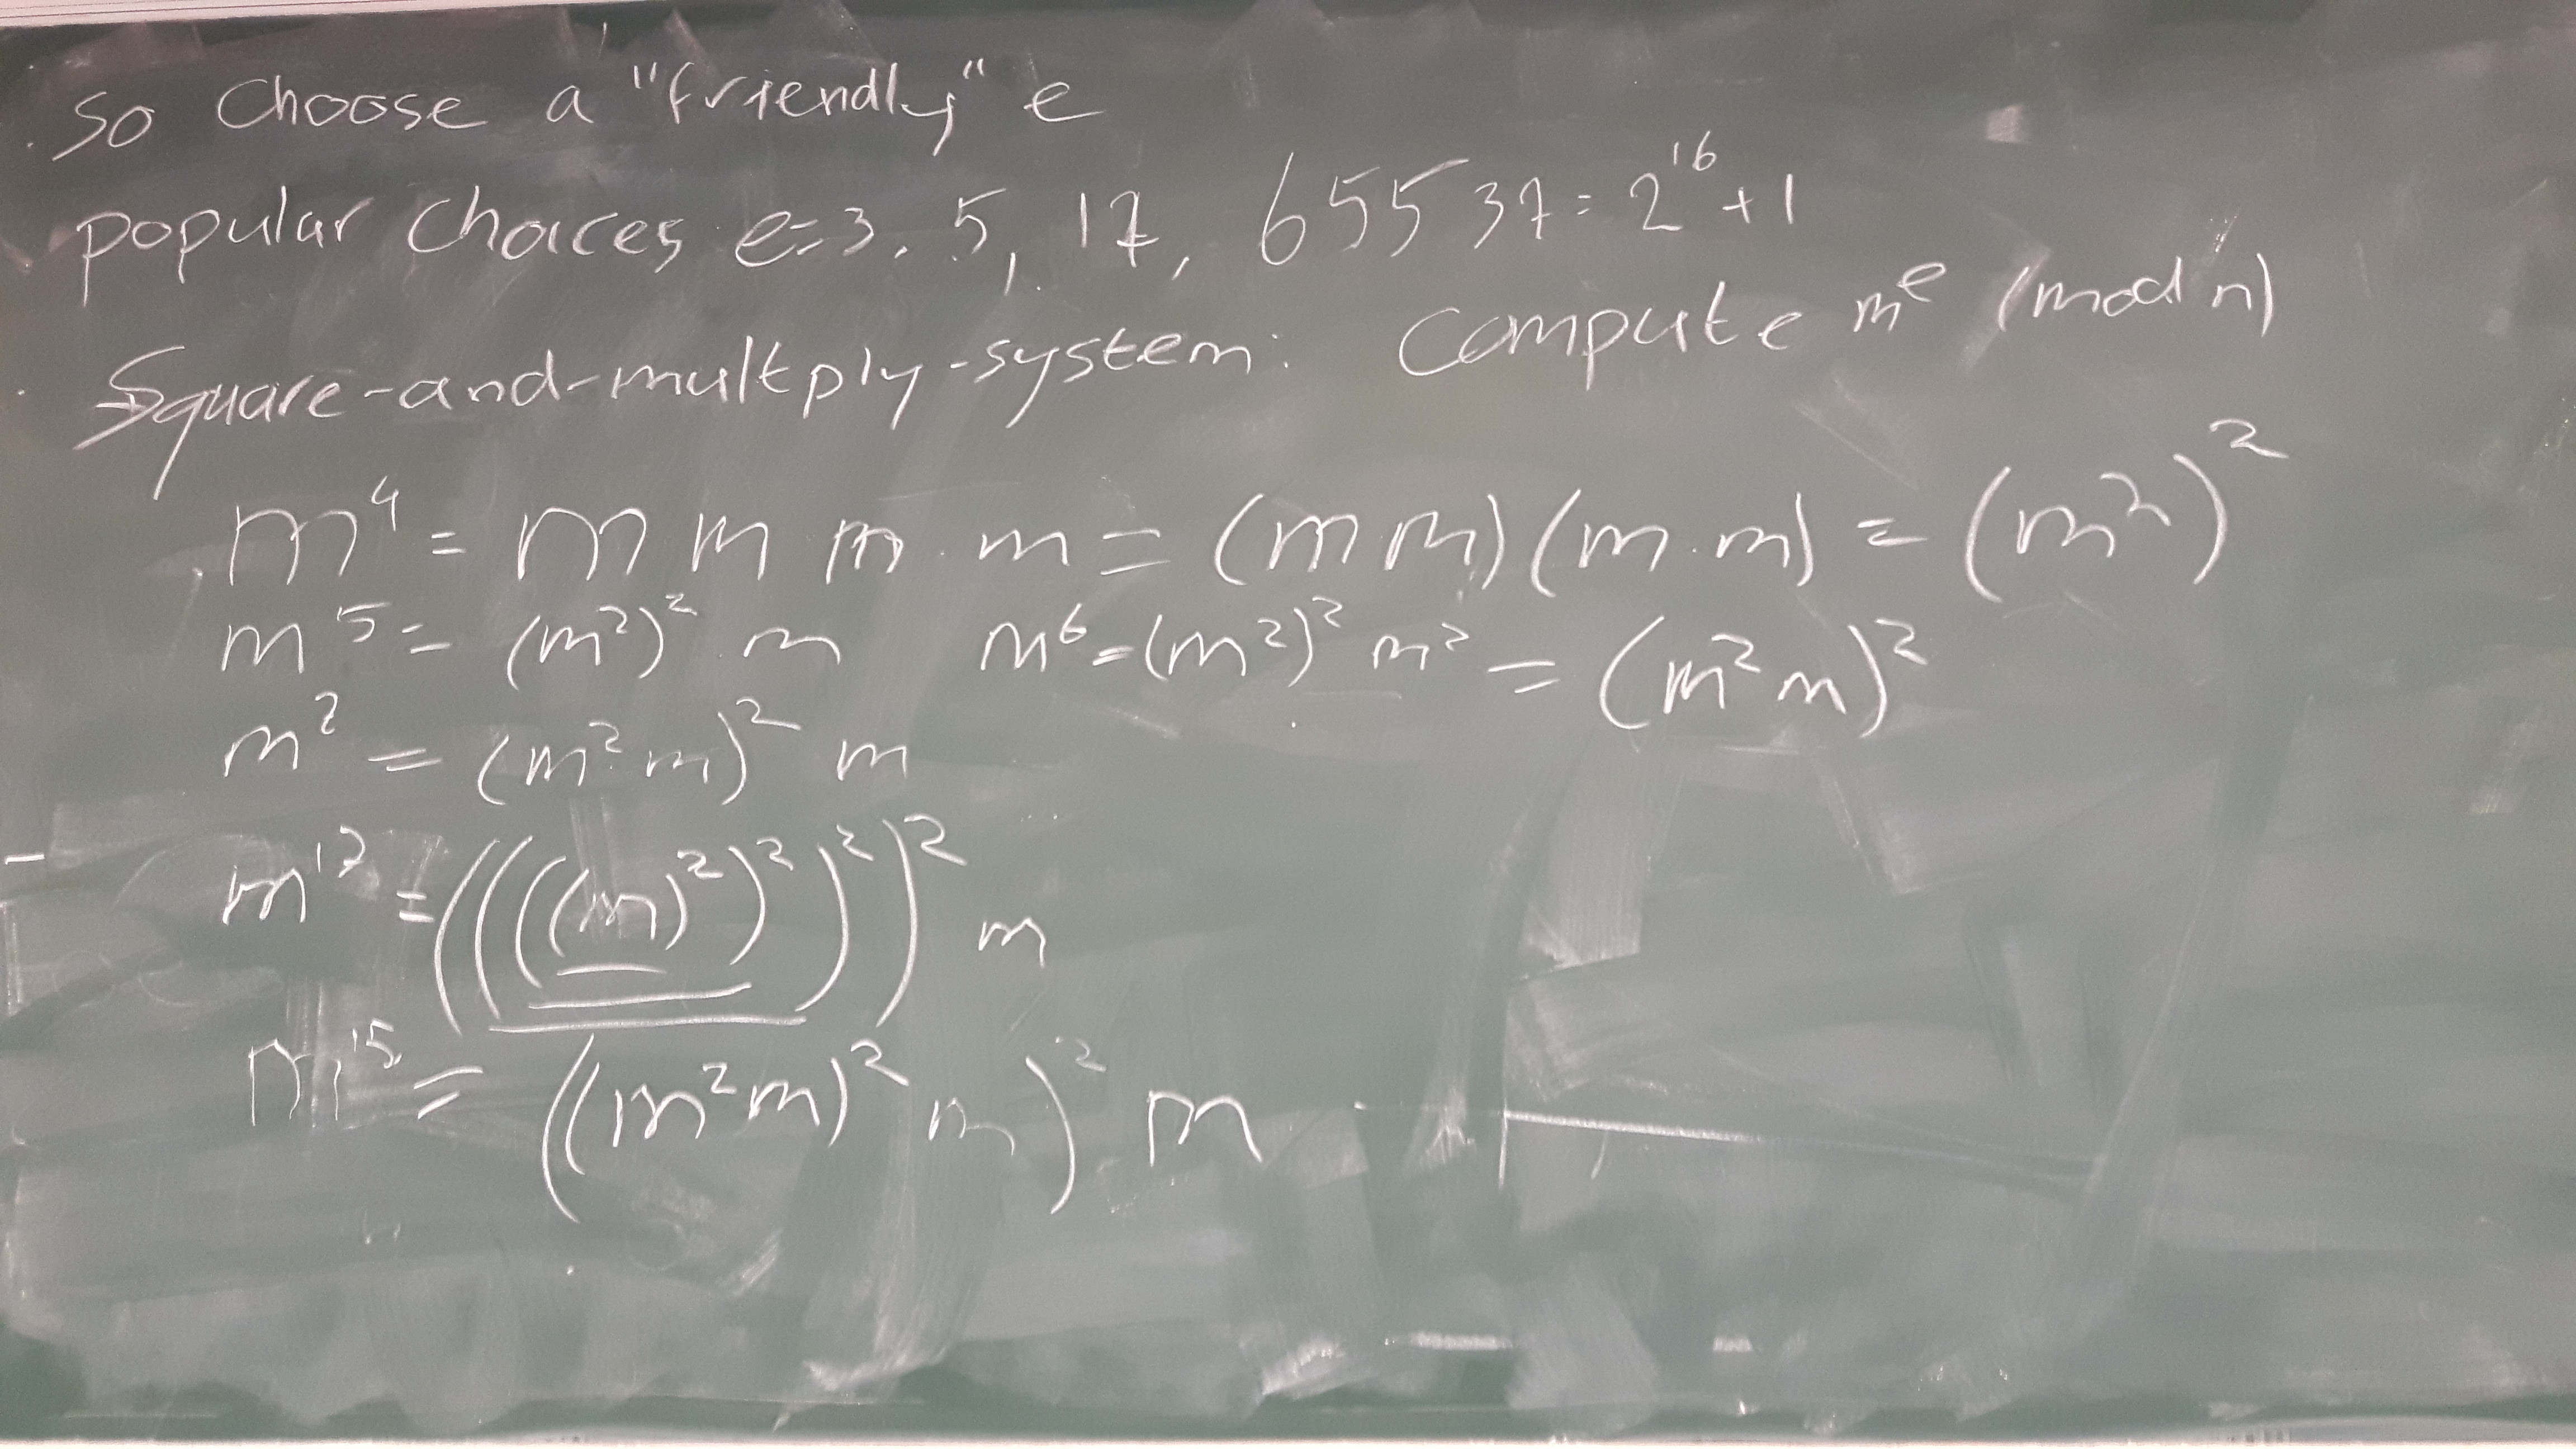 So choose a "friendly" e
popular choices e=3, 5, 17, 65537 = 2^16 + 1
Square-and-multply-system: Compute m^e (mod n)
m^4 = m m m · m = (m m)(m · m) = (m^2)^2
m^5 = (m^2)^2 m   m^6 = (m^2)^2 m^2 = (m^2 m)^2
m^7 = (m^2 m)^2 m
m^17 = ((((m)^2)^2)^2)^2 m
m^15 = ((m^2 m)^2 m)^2 m